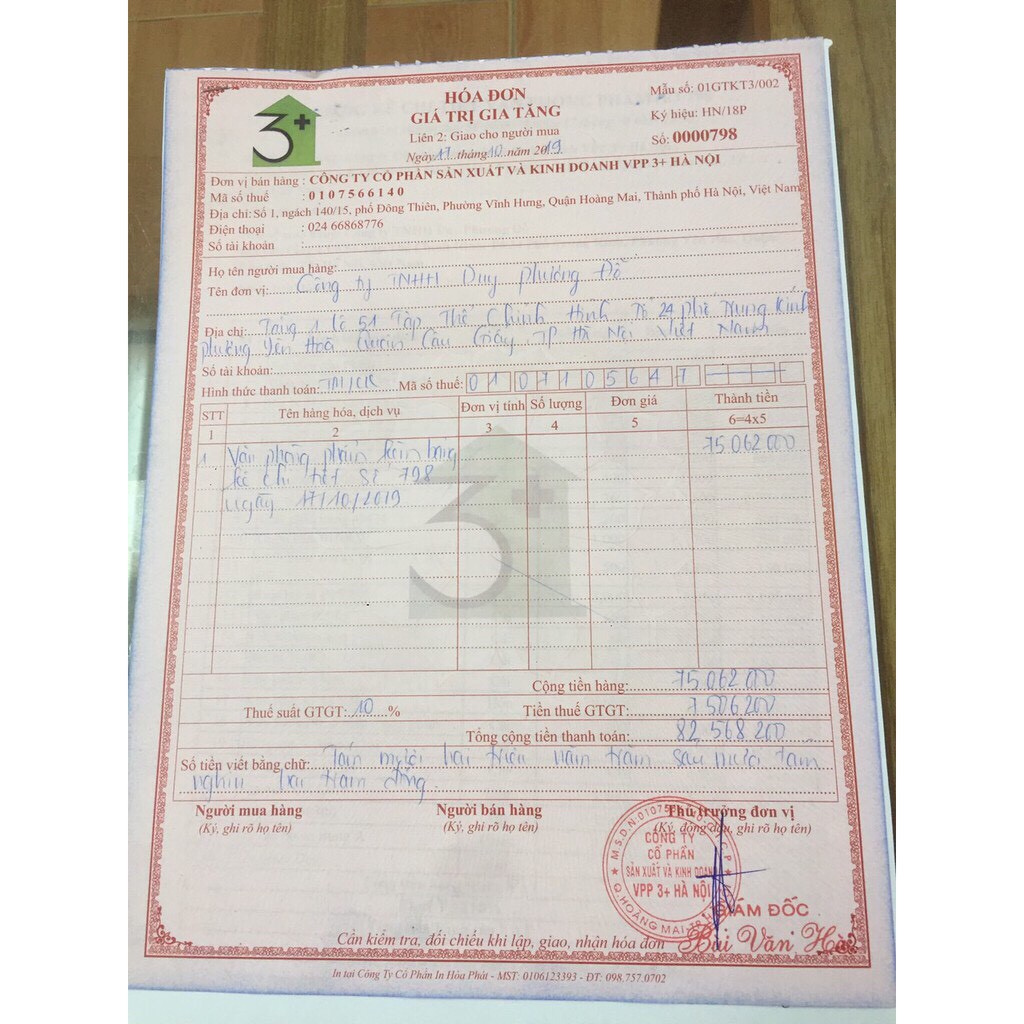 3+
HÓA ĐƠN
GIÁ TRỊ GIA TĂNG
Liên 2: Giao cho người mua
Ngày 17 tháng 10 năm 2019
Mẫu số: 01GTKT3/002
Ký hiệu: HN/18P
Số: 0000798
Đơn vị bán hàng : CÔNG TY CỔ PHẦN SẢN XUẤT VÀ KINH DOANH VPP 3+ HÀ NỘI
Mã số thuế : 0107566140
Địa chỉ: Số 1, ngách 140/15, phố Đông Thiên, Phường Vĩnh Hưng, Quận Hoàng Mai, Thành phố Hà Nội, Việt Nam
Điện thoại : 024 66868776
Số tài khoản :
Họ tên người mua hàng:
Tên đơn vị: Công ty TNHH Duy Phương Đỗ
Địa chỉ: Tầng 1 lô 51 Tập Thể Chỉnh Hình Tổ 24 phố Trung Kính
phường Yên Hoà Quận Cầu Giấy TP Hà Nội Việt Nam
Số tài khoản:
Hình thức thanh toán: TM/CK Mã số thuế: 0107105647
STT Tên hàng hóa, dịch vụ Đơn vị tính Số lượng Đơn giá Thành tiền
1 2 3 4 5 6=4x5
1 Văn phòng phẩm kèm bảng 75.062.000
kê chi tiết số 798
ngày 17/10/2019
3+
Cộng tiền hàng: 75.062.000
Thuế suất GTGT: 10 % Tiền thuế GTGT: 7506200
Tổng cộng tiền thanh toán: 82 568 200
Số tiền viết bằng chữ: Tám mươi hai triệu năm trăm sáu mươi tám
nghìn hai trăm đồng.
Người mua hàng Người bán hàng Thủ trưởng đơn vị
(Ký, ghi rõ họ tên) (Ký, ghi rõ họ tên) (Ký, đóng dấu, ghi rõ họ tên)
CÔNG TY
CỔ PHẦN
SẢN XUẤT VÀ KINH DOANH
VPP 3+ HÀ NỘI
Q.HOÀNG MAI
GIÁM ĐỐC
Bùi Văn Hà
Cần kiểm tra, đối chiếu khi lập, giao, nhận hóa đơn
In tại Công Ty Cổ Phần In Hòa Phát - MST: 0106123393 - ĐT: 098.757.0702